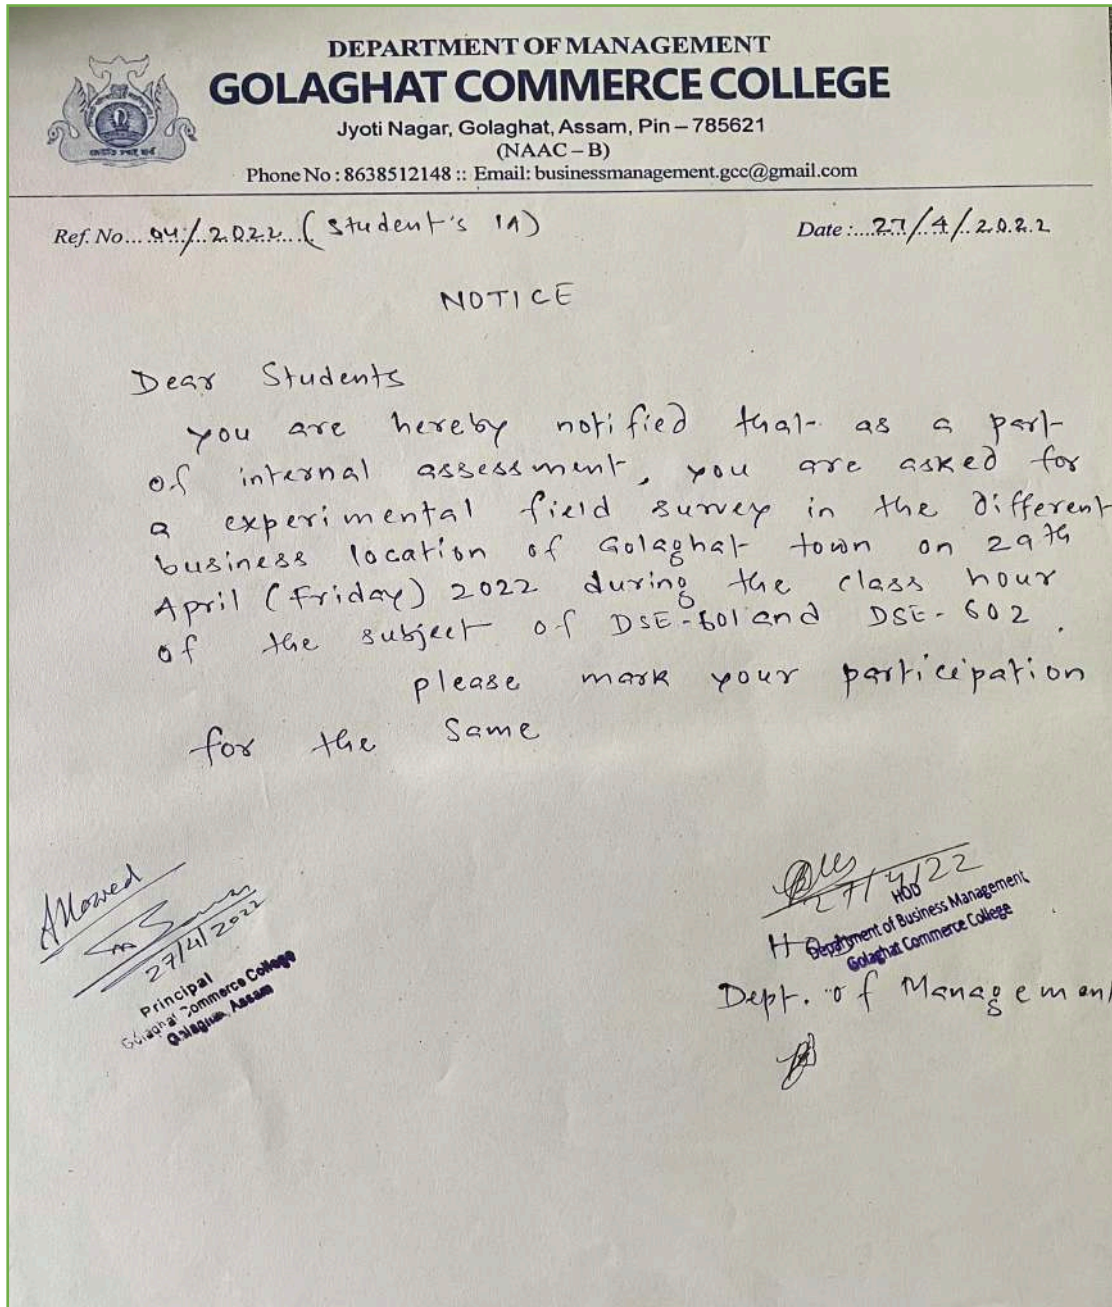 DEPARTMENT OF MANAGEMENT
GOLAGHAT COMMERCE COLLEGE
Jyoti Nagar, Golaghat, Assam, Pin – 785621
(NAAC – B)
Phone No : 8638512148 :: Email: businessmanagement.gcc@gmail.com
Ref. No... 04/2022 (Student's IA)
Date :... 27/4/2022
NOTICE
Dear Students
you are hereby notified that as a part
of internal assessment, you are asked for
a experimental field survey in the different
business location of Golaghat town on 29th
April (Friday) 2022 during the class hour
of the subject of DSE-601 and DSE-602.
please mark your participation
for the same
Allowed
27/4/2022
Principal
Golaghat Commerce College
Golaghat, Assam
27/4/22
HOD
Department of Business Management
Golaghat Commerce College
Dept. of Management